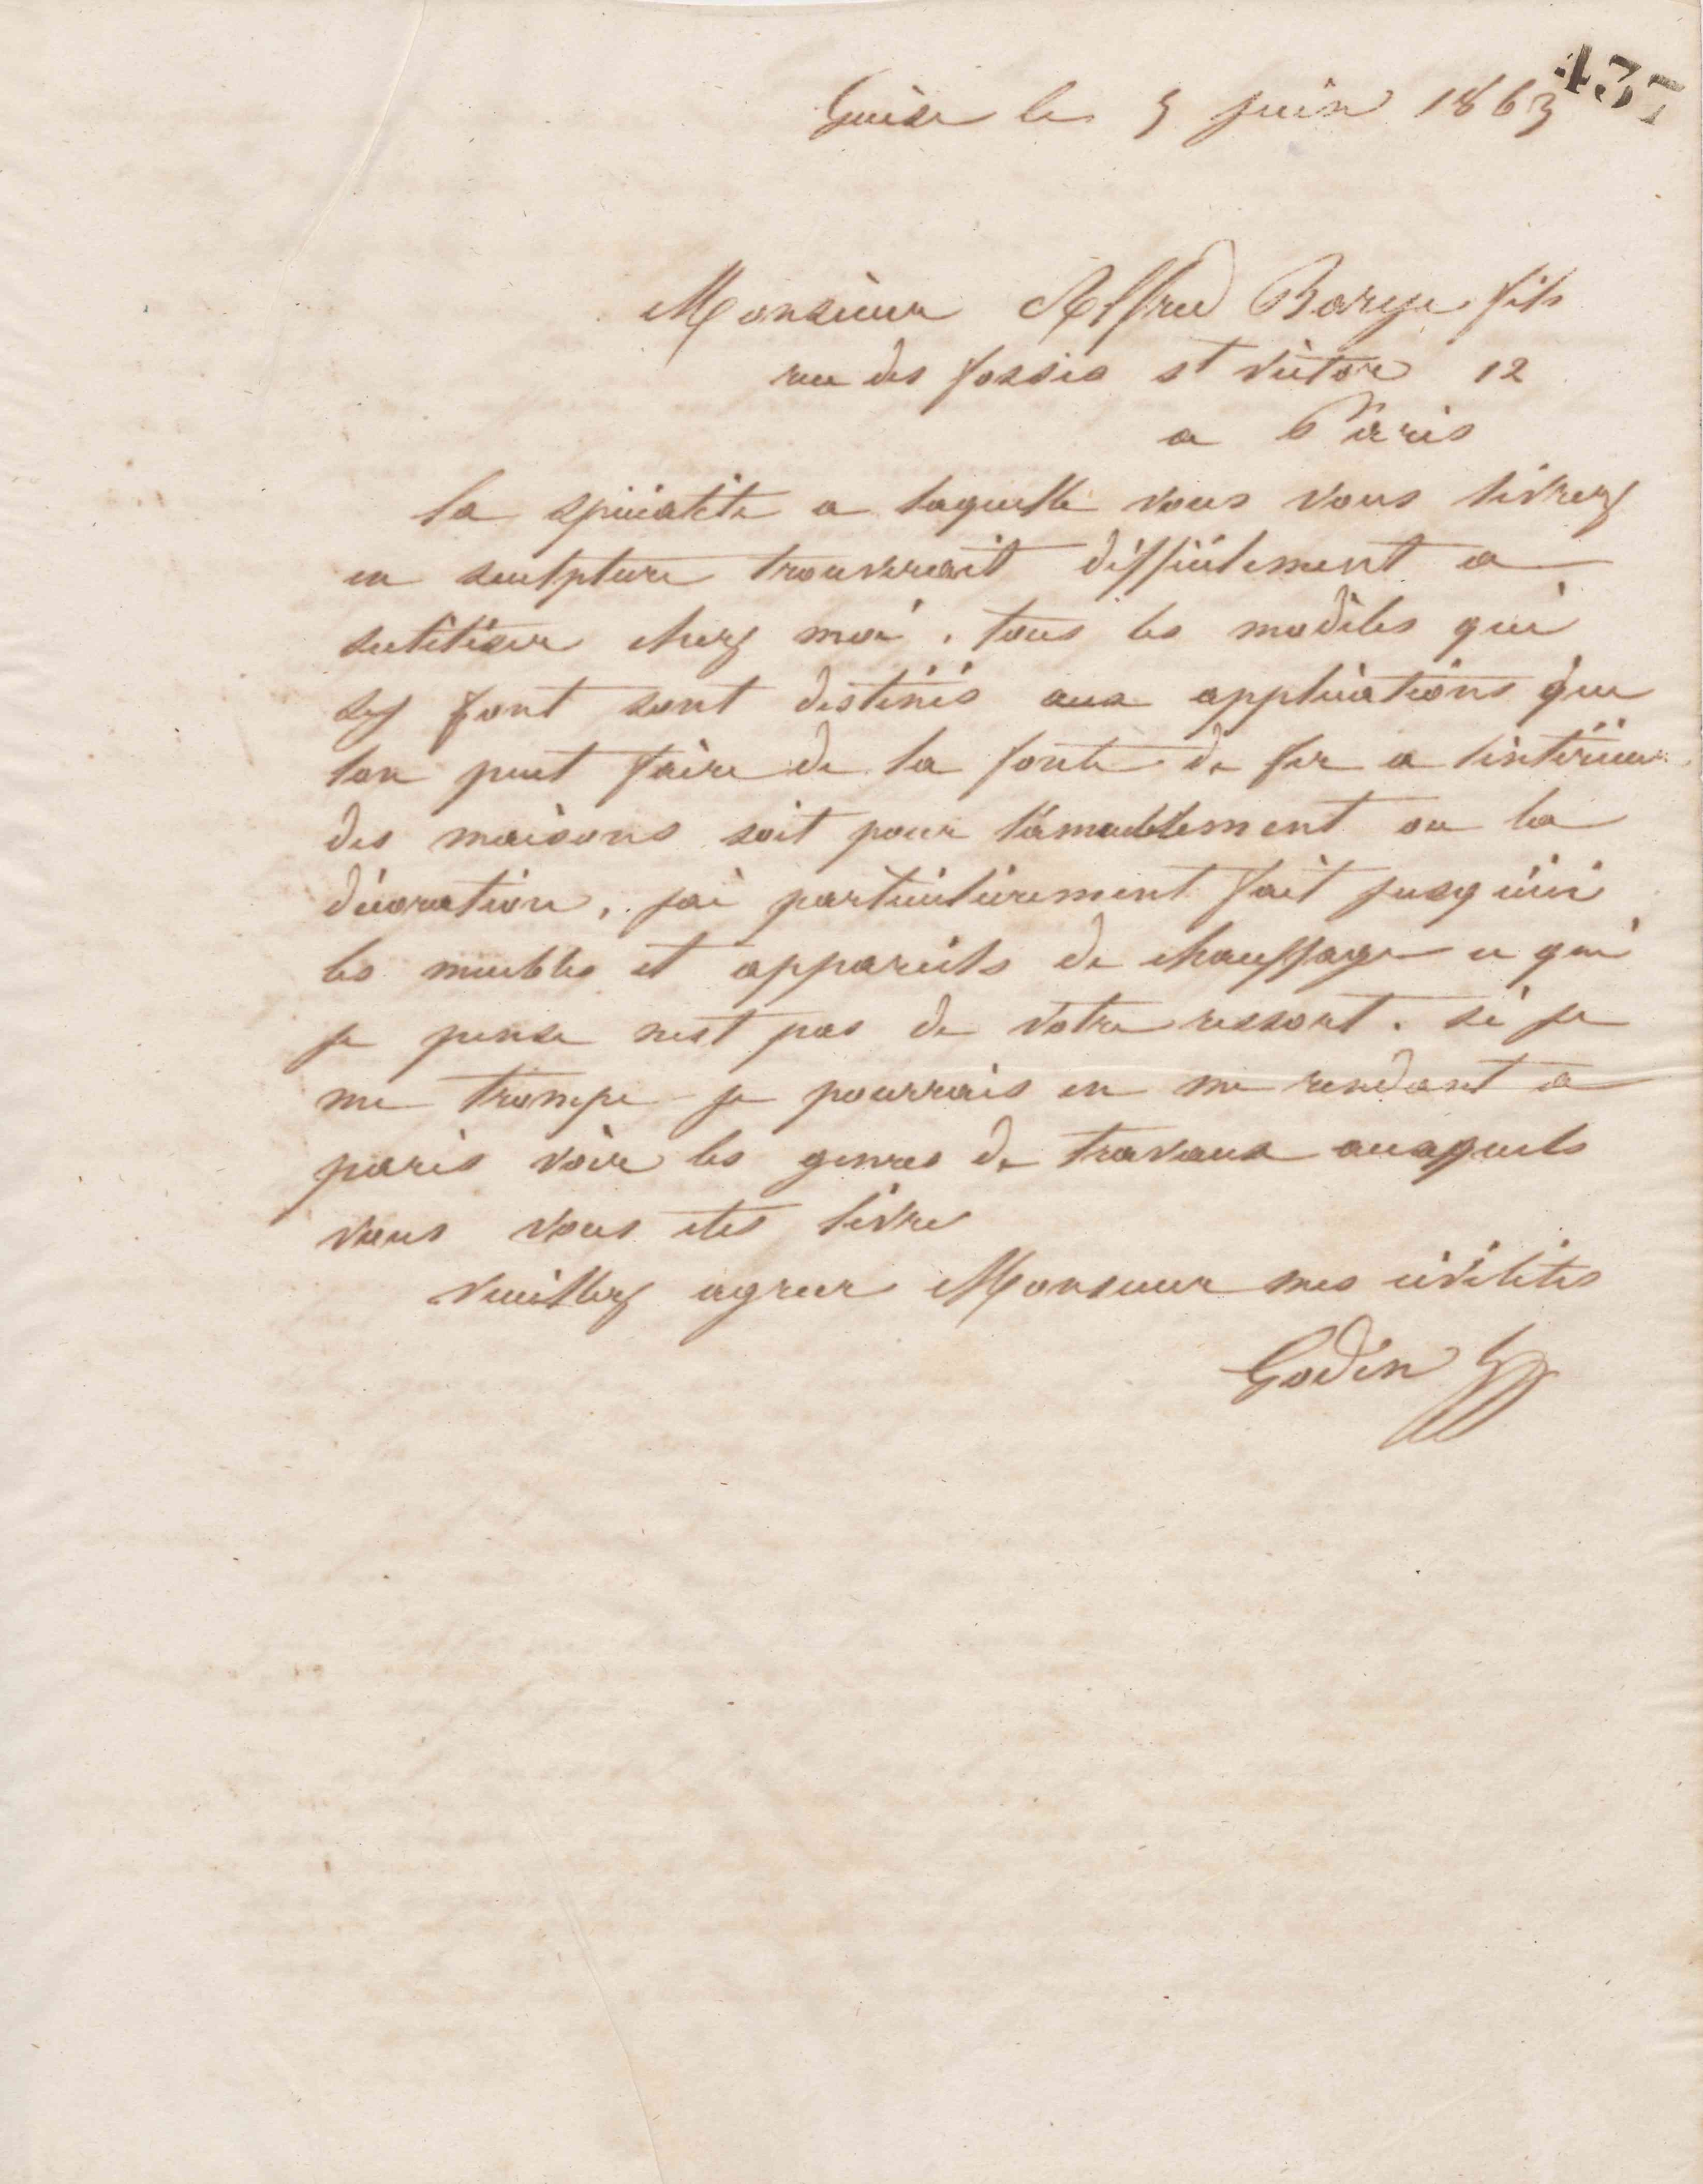 437
Guise le 5 juin 1863
Monsieur Alfred Barye fils
rue des fossés st victor 12
a Paris
la spécialité a laquelle vous vous livrez
en sculpture trouverait difficilement a
sutiliser chez moi. tous les modèles qui
sy font sont destinés aux applications que
lon peut faire de la fonte de fer a lintérieur
des maisons soit pour lameublement ou la
décoration, jai particulièrement fait jusquici
les meubles et appareils de chauffage ce qui
je pense nest pas de votre ressort. si je
me trompe je pourrais en me rendant a
paris voir les genres de travaux auxquels
vous vous etes livré
veuillez agreer Monsieur mes civilités
Godin